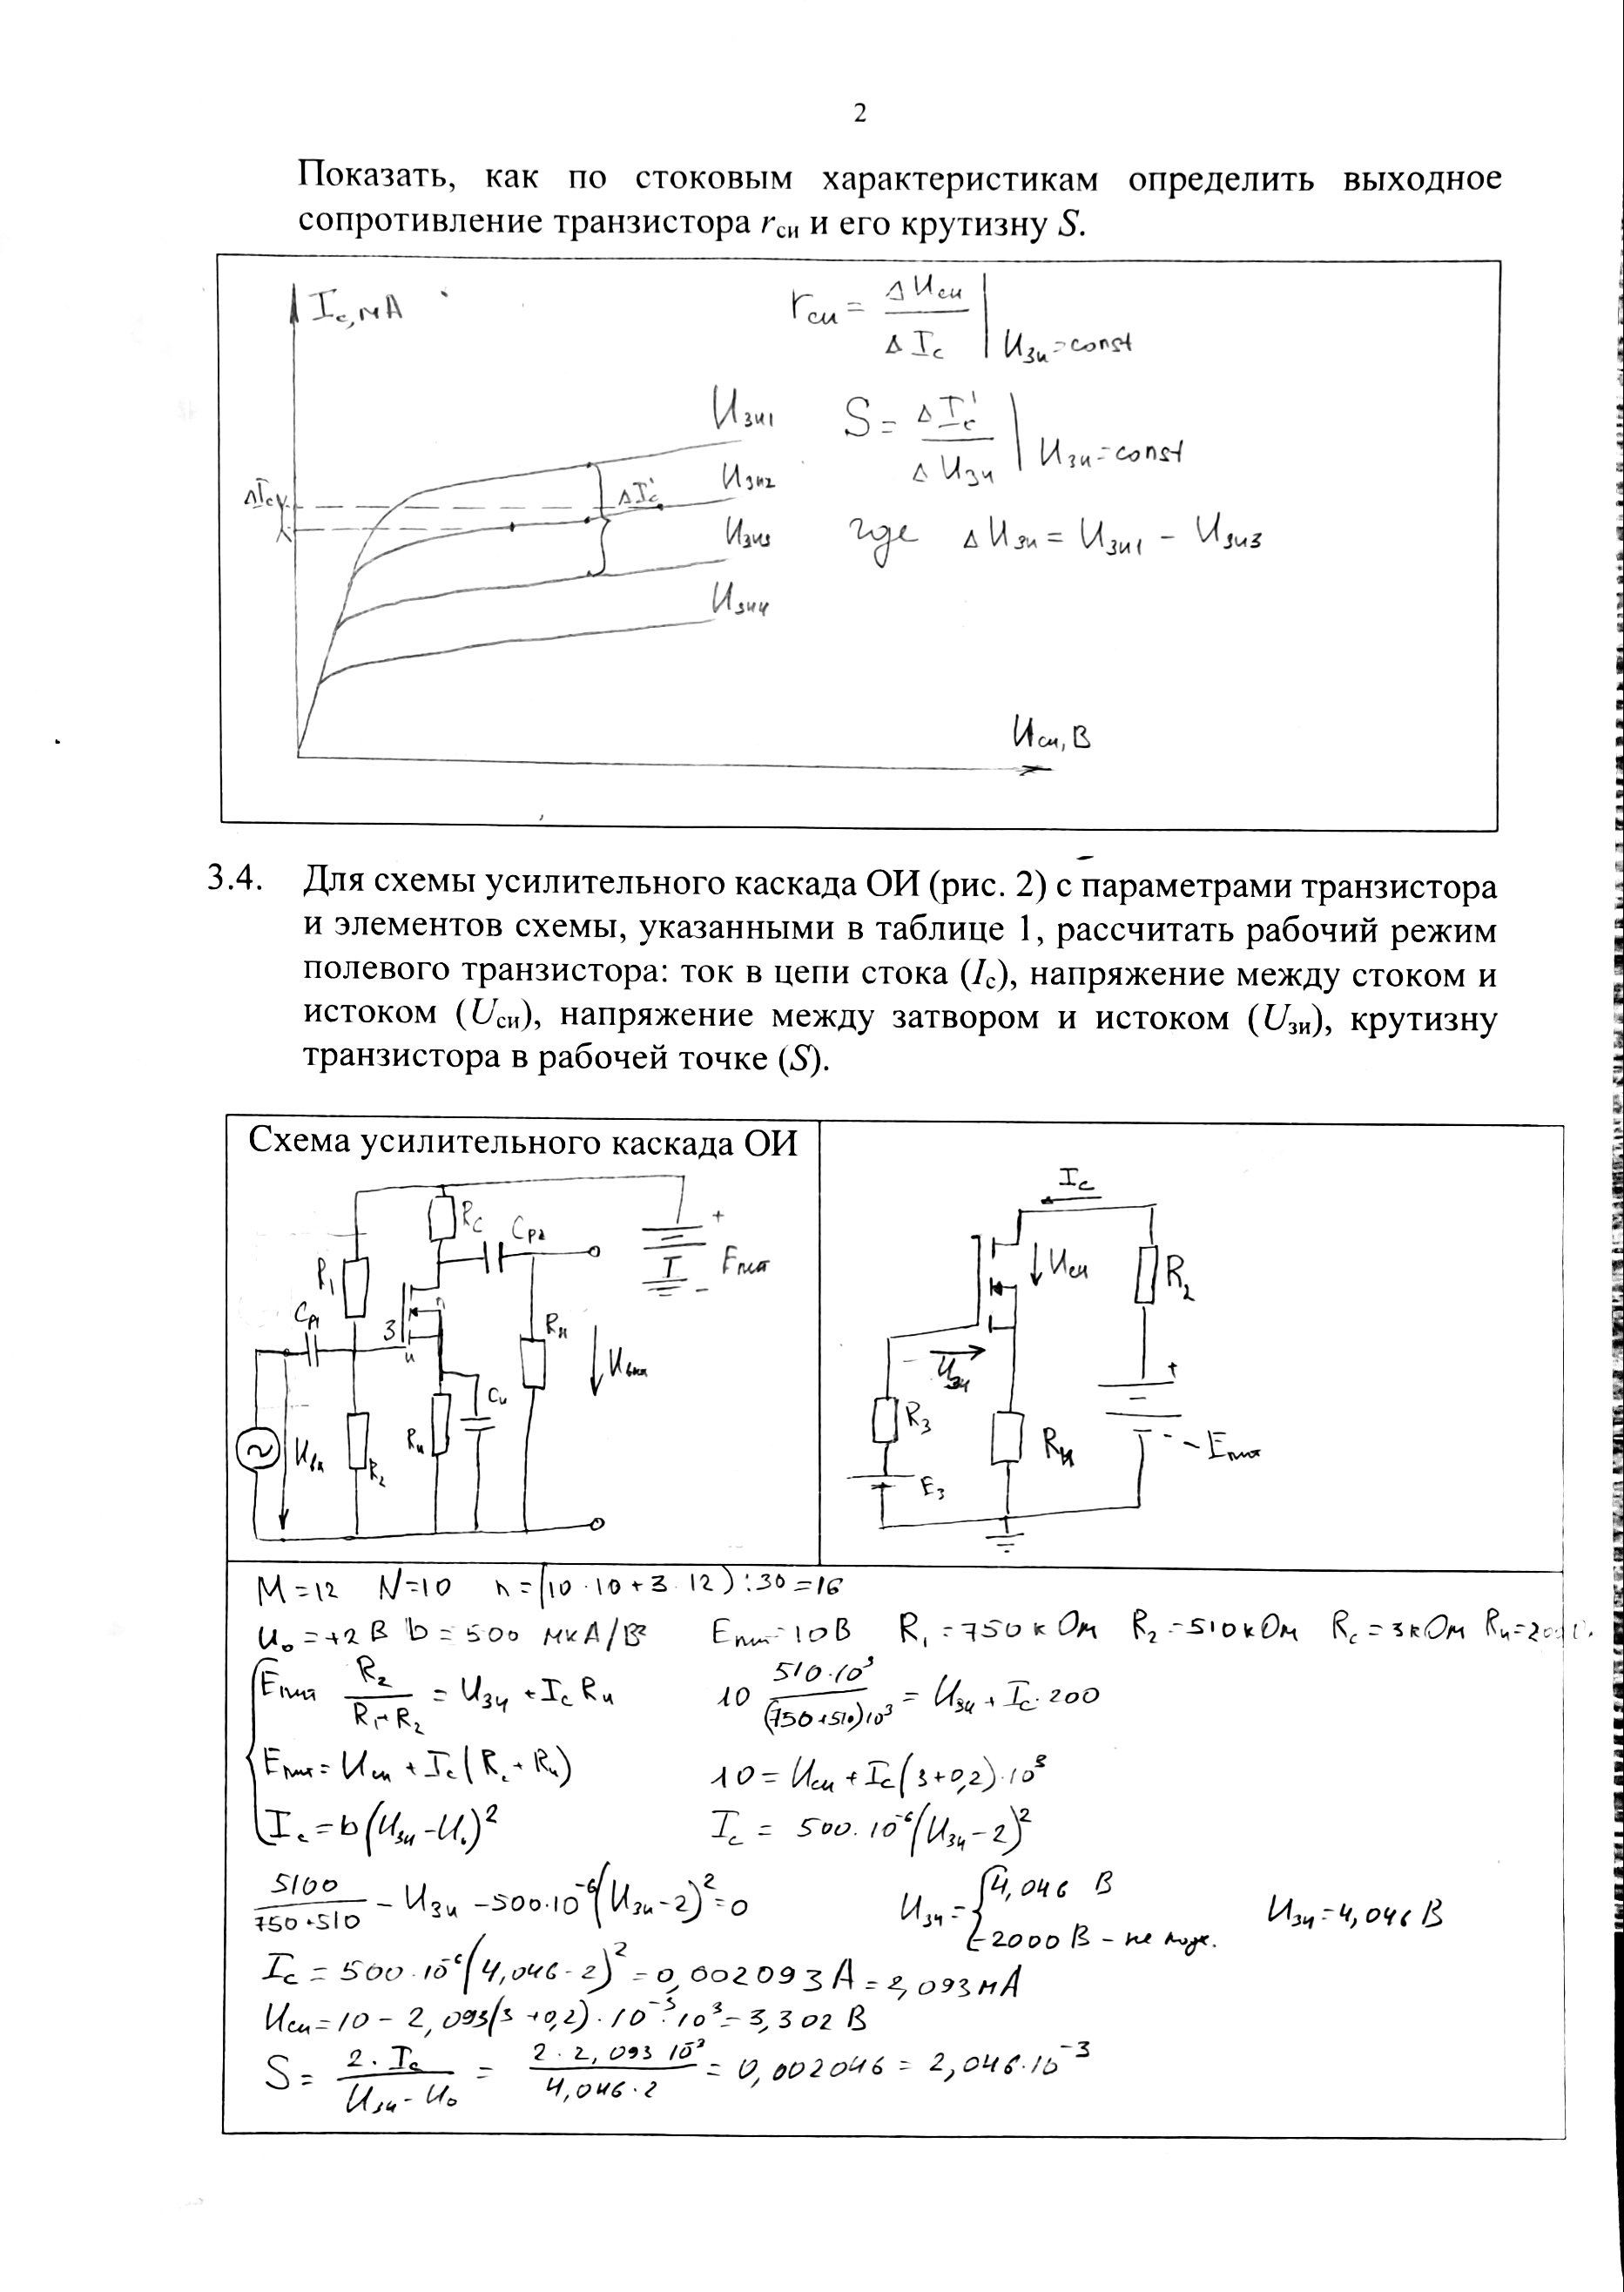 2
Показать, как по стоковым характеристикам определить выходное
сопротивление транзистора rси и его крутизну S.
Iс, мА
rси = ΔUси / ΔIс | Uзи = const
Uзи1
S = ΔI'с / ΔUзи | Uзи = const
Uзи2
ΔIс
ΔI'с
Uзи3
где ΔUзи = Uзи1 - Uзи3
Uзи4
Uси, В
3.4. Для схемы усилительного каскада ОИ (рис. 2) с параметрами транзистора
и элементов схемы, указанными в таблице 1, рассчитать рабочий режим
полевого транзистора: ток в цепи стока (Iс), напряжение между стоком и
истоком (Uси), напряжение между затвором и истоком (Uзи), крутизну
транзистора в рабочей точке (S).
Схема усилительного каскада ОИ
Rс
Cр2
+
Eпит
-
R1
Cр1
З
и
Rн
Uвых
Cи
Uвх
R2
Rи
Iс
Uси
R2
Uзи
+
Rз
Rи
- Eпит
Eз
M=12 N=10 n=(10·10+3·12):30=16
U0=+2 В b=500 мкА/В² Eпит=10В R1=750 кОм R2=510кОм Rс=3кОм Rи=200
Eпит R2 / (R1+R2) = Uзи + Iс Rи
10 510·10³ / (750+510)10³ = Uзи + Iс·200
Eпит = Uси + Iс(Rс+Rи)
10 = Uси + Iс(3+0,2)·10³
Iс = b(Uзи-U0)²
Iс = 500·10⁻⁶(Uзи-2)²
5100 / 750+510 - Uзи - 500·10⁻⁶(Uзи-2)² = 0
Uзи = { 4,046 В
-2000 В - не подх.
Uзи = 4,046 В
Iс = 500·10⁻⁶(4,046-2)² = 0,002093 А = 2,093 мА
Uси = 10 - 2,093(3+0,2)·10⁻³·10³ = 3,302 В
S = 2·Iс / Uзи-U0 = 2·2,093·10⁻³ / 4,046·2 = 0,002046 = 2,046·10⁻³